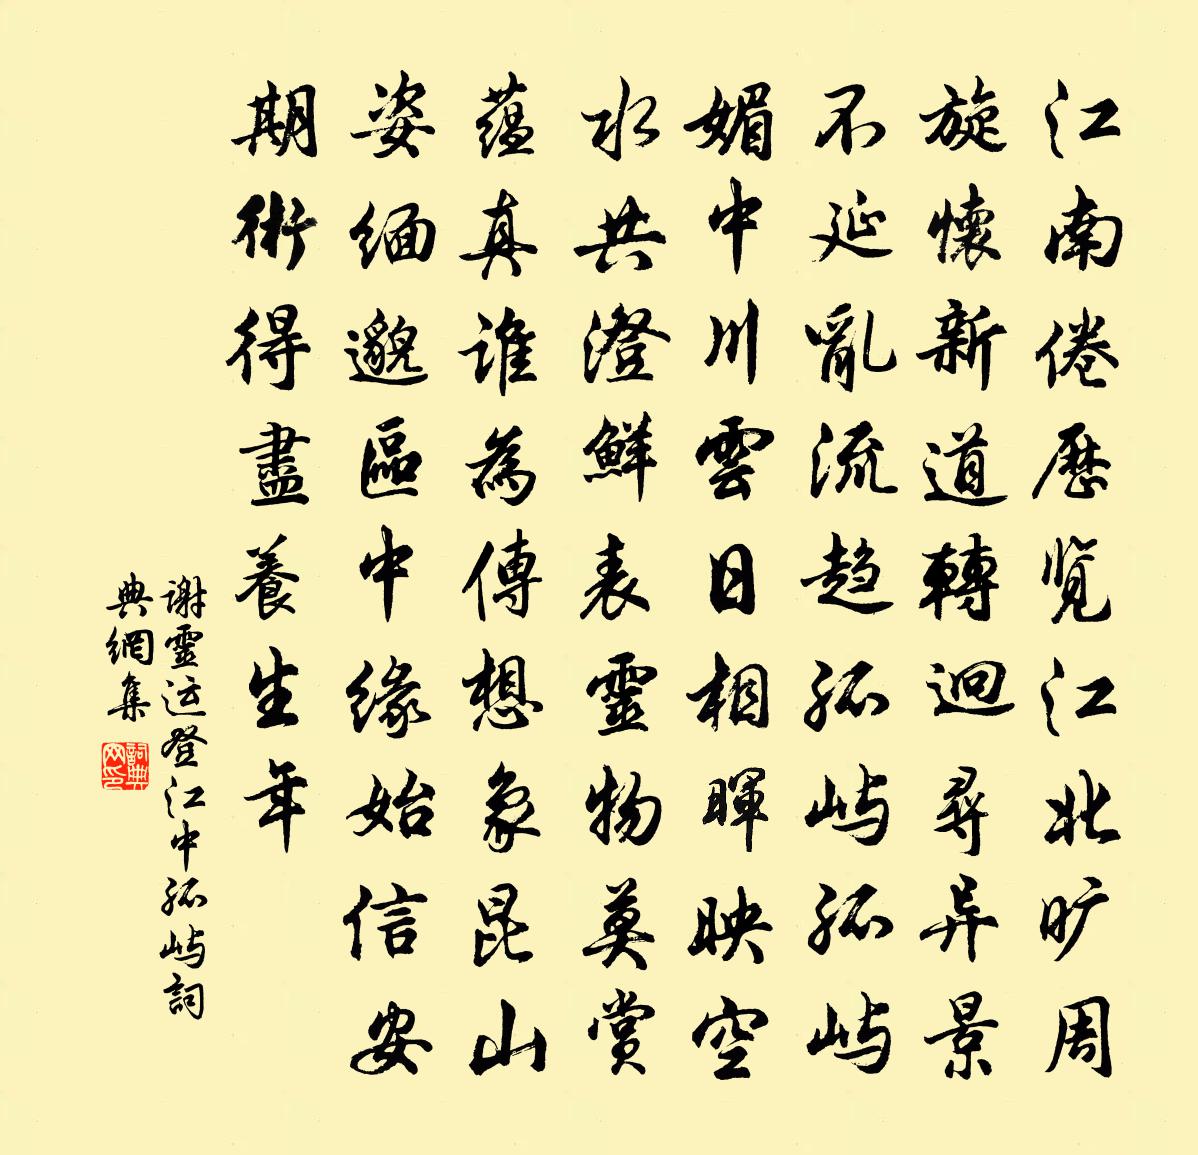 江南倦歷览江北旷周
旋懷新道轉迴尋异景
不延亂流趋孤屿孤屿
媚中川雲日相暉映空
水共澄鮮表靈物莫赏
蘊真誰為傳想象昆山
姿缅邈區中缘始信安
期術得盡養生年
谢靈运登江中孤屿詞
典網集
詞典
网印